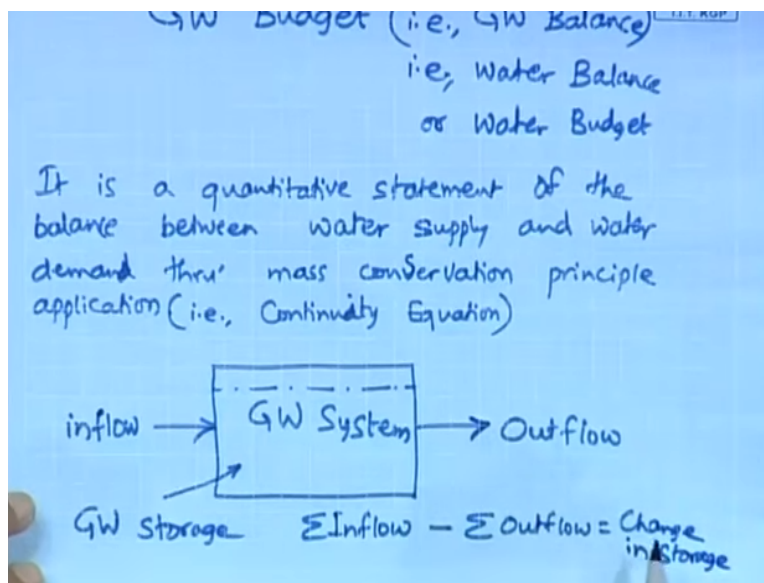 GW Budget (i.e., GW Balance)
I.I.T. KGP
i.e, Water Balance
or Water Budget
It is a quantitative statement of the
balance between water supply and water
demand thru' mass conservation principle
application (i.e., Continuity Equation)
inflow → GW System → Outflow
GW Storage ΣInflow - ΣOutflow = Change
in Storage